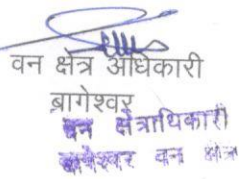 वन क्षेत्र अधिकारी
बागेश्वर
वन क्षेत्राधिकारी
बागेश्वर वन क्षेत्र